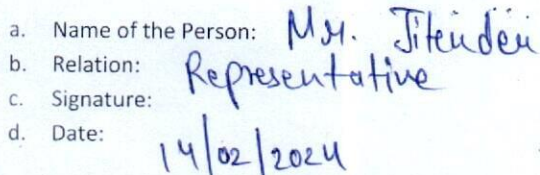 a. Name of the Person: Mr. Jitender
b. Relation: Representative
c. Signature:
d. Date: 14/02/2024